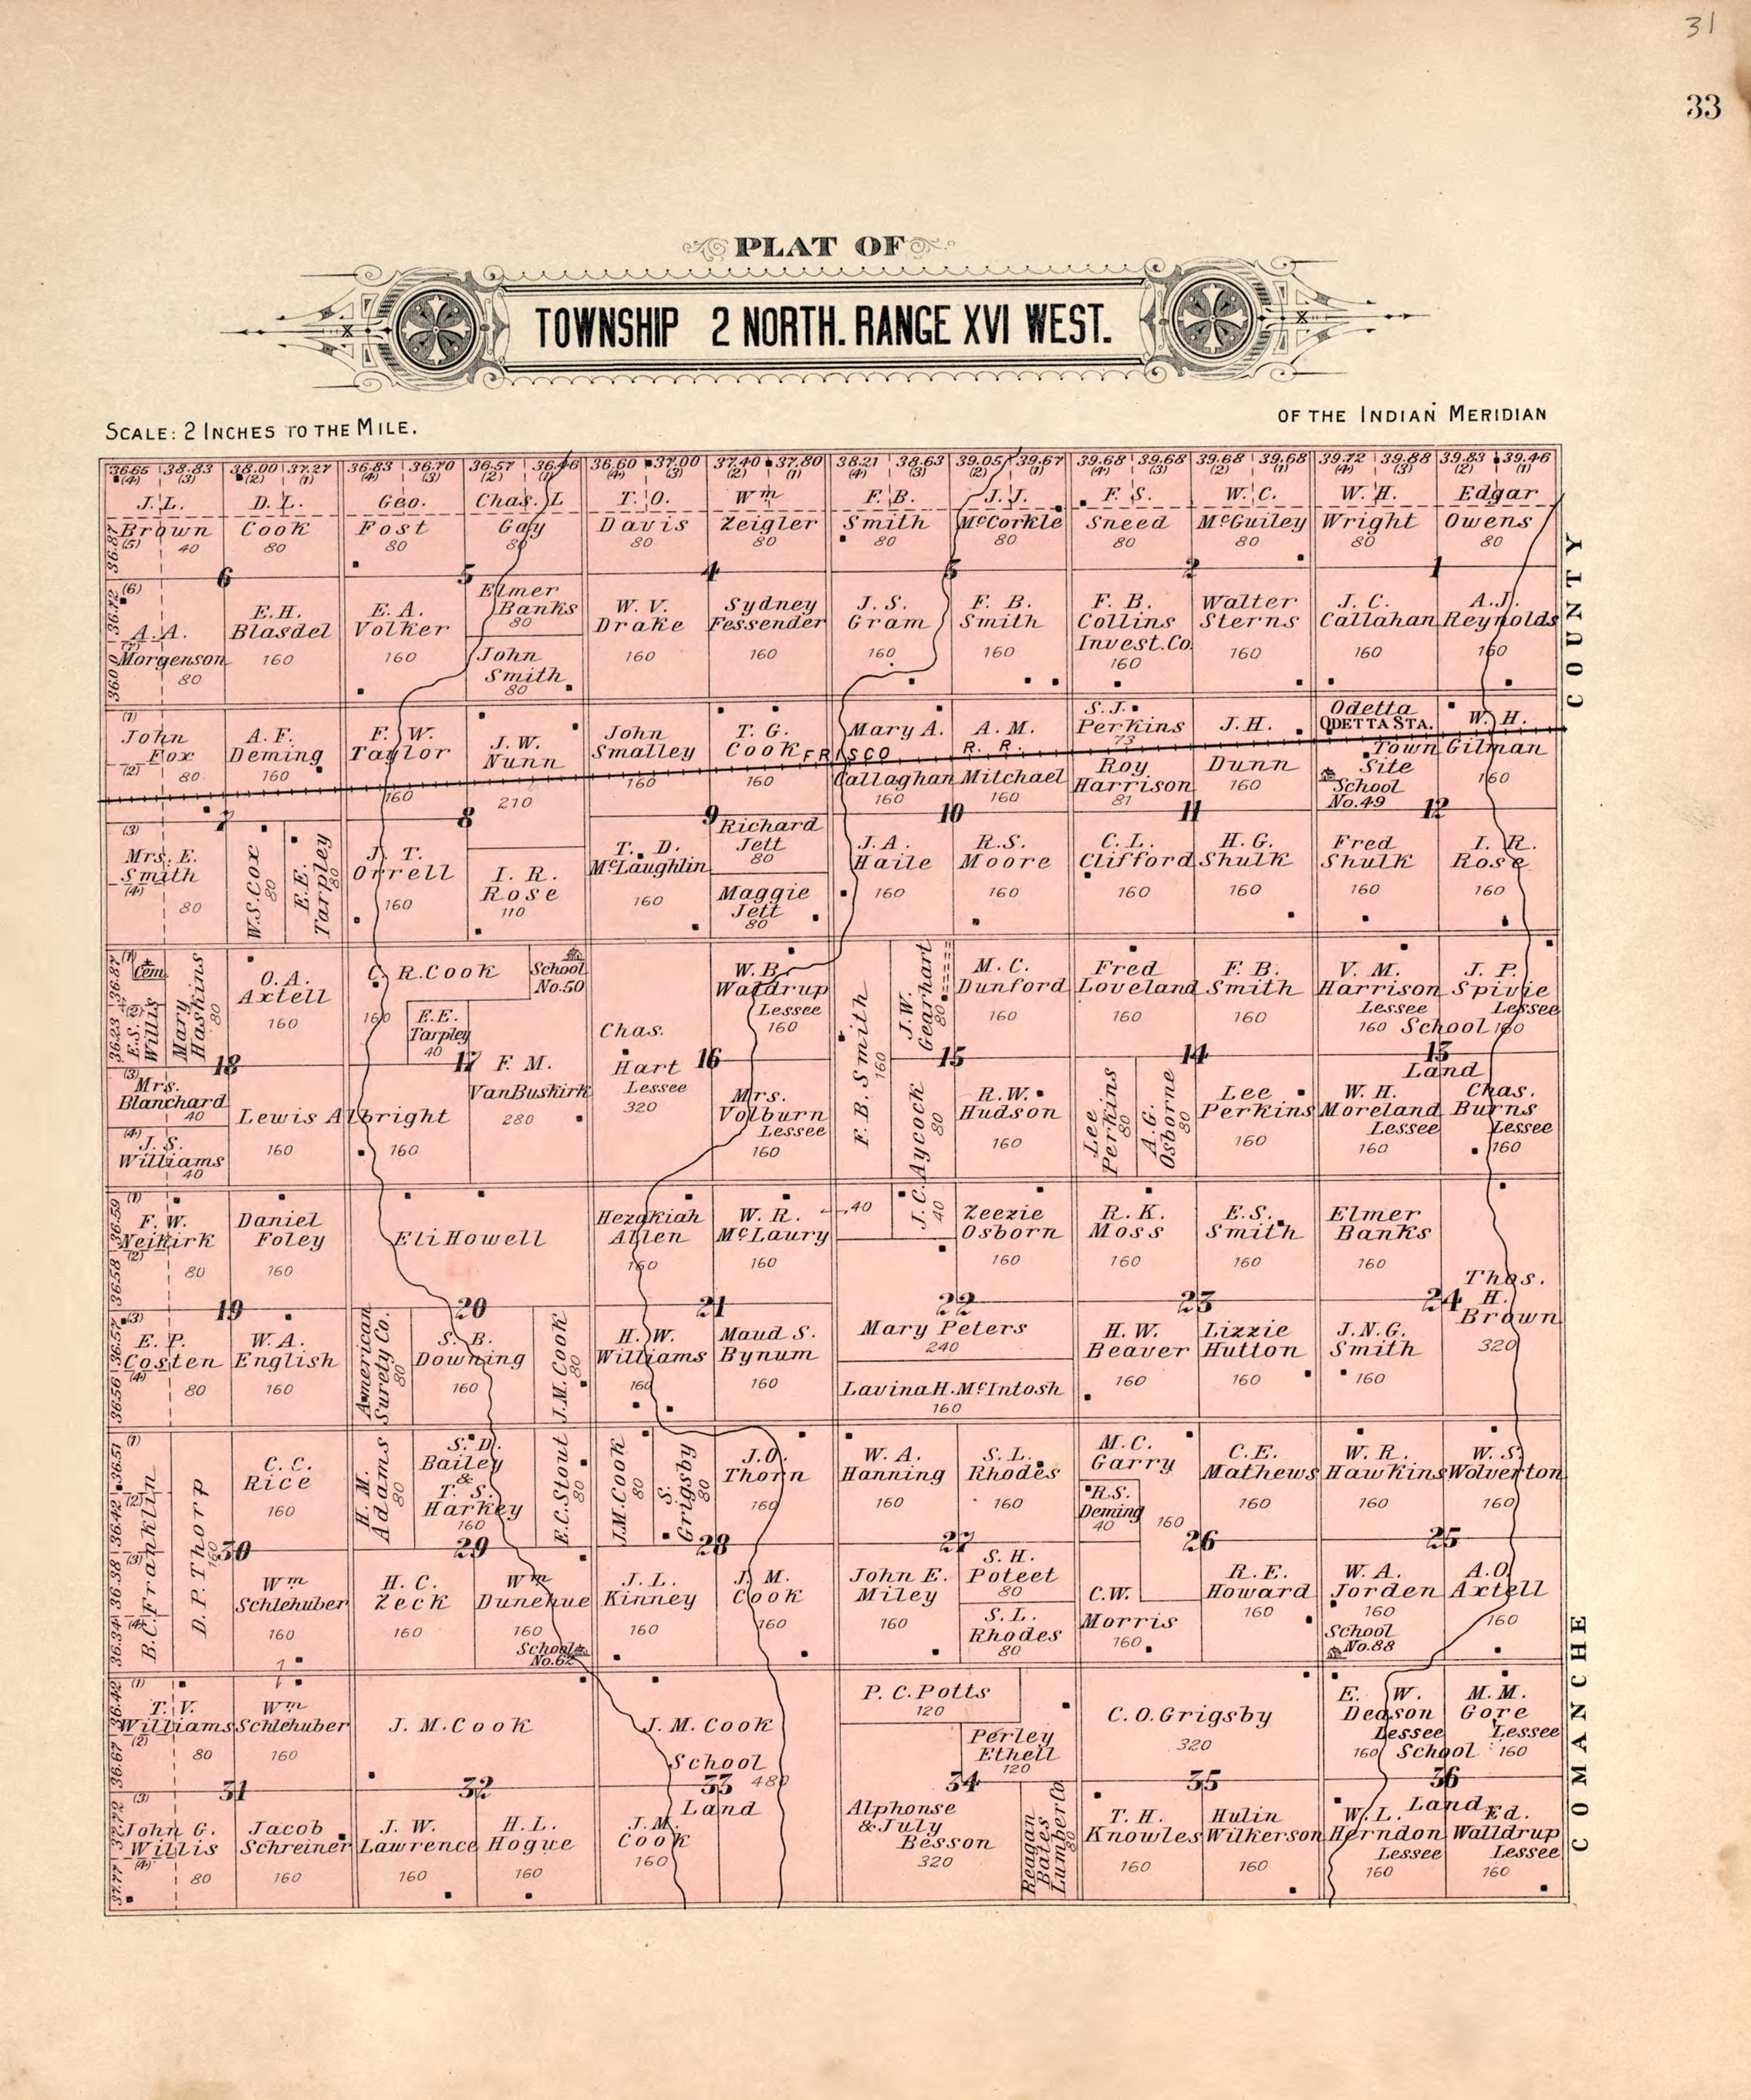 31
33
PLAT OF
TOWNSHIP 2 NORTH. RANGE XVI WEST.
SCALE: 2 INCHES TO THE MILE.
OF THE INDIAN MERIDIAN
36.65 38.83 38.00 37.27 36.83 36.70 36.57 36.46 36.60 37.00 37.40 37.80 38.21 38.63 39.05 39.67 39.68 39.68 39.68 39.68 39.72 39.88 39.83 39.46
(4) (2) (1) (4) (3) (2) (1) (4) (3) (2) (1) (4) (3) (2) (1) (4) (3) (2) (1) (4) (3) (2) (1)
J. L. Brown 40
D. L. Cook 80
Geo. Fost 80
Chas. L Gay 80
T. O. Davis 80
Wm Zeigler 80
F. B. Smith 80
J. J. McCorkle 80
F. S. Sneed 80
W. C. McGuiley 80
W. H. Wright 80
Edgar Owens 80
36.87 (5)
6 5 4 2 1
36.72 (6)
A. A. Morgenson 80
(7)
E. H. Blasdel 160
E. A. Volker 160
Elmer Banks 80
John Smith 80
W. V. Drake 160
Sydney Fessender 160
J. S. Gram 160
F. B. Smith 160
F. B. Collins Invest. Co 160
Walter Sterns 160
J. C. Callahan 160
A. J. Reynolds 160
COUNTY
(1)
John Fox 80
(2)
A. F. Deming 160
F. W. Taylor 160
J. W. Nunn 210
John Smalley 160
T. G. Cook 160
FRISCO R. R.
Mary A. Callaghan 160
A. M. Mitchael 160
S. J. Perkins 73
Roy Harrison 81
J. H. Dunn 160
Odetta
ODETTA STA.
Town Site
School No. 49
W. H. Gilman 160
7 8 9 10 11 12
(3)
Mrs. E. Smith 80
(4)
W. S. Cox 80
E. E. Tarpley 80
J. T. Orrell 160
I. R. Rose 110
T. D. McLaughlin 160
Richard Jett 80
Maggie Jett 80
J. A. Haile 160
R. S. Moore 160
C. L. Clifford 160
H. G. Shulk 160
Fred Shulk 160
I. R. Rose 160
36.87 (1)
Cem.
36.23 (2)
E. S. Willis
Mary Haskins 80
O. A. Axtell 160
C. R. Cook 160
School No. 50
E. E. Tarpley 40
Chas. Hart Lessee 320
W. B. Waldrup Lessee 160
F. B. Smith 160
J. W. Gearhart 80
M. C. Dunford 160
Fred Loveland 160
F. B. Smith 160
V. M. Harrison Lessee 160
J. P. Spivie Lessee 160
School Land
18 17 16 15 14 13
(3)
Mrs. Blanchard 40
(4)
J. S. Williams 40
Lewis Albright 160 160
F. M. VanBuskirk 280
Mrs. Volburn Lessee 160
J. C. Aycock 80
R. W. Hudson 160
Lee Perkins 80
A. G. Osborne 80
Lee Perkins 160
W. H. Moreland Lessee 160
Chas. Burns Lessee 160
36.59 (1)
F. W. Neikirk 80
36.58 (2)
Daniel Foley 160
Eli Howell
Hezakiah Allen 160
W. R. McLaury 160
40
40
Zeezie Osborn 160
R. K. Moss 160
E. S. Smith 160
Elmer Banks 160
Thos. H. Brown 320
19 20 21 22 23 24
36.57 (3)
E. P. Costen 80
36.56 (4)
W. A. English 160
American Surety Co. 80
S. B. Downing 160
J. M. Cook 80
H. W. Williams 160
Maud S. Bynum 160
Mary Peters 240
Lavina H. McIntosh 160
H. W. Beaver 160
Lizzie Hutton 160
J. N. G. Smith 160
36.51 (1)
36.42 (2)
B. C. Franklin
D. P. Thorp 160
C. C. Rice 160
H. M. Adams 80
S. D. Bailey & T. S. Harkey 160
E. C. Stout 80
J. M. Cook 80
S. Grigsby 80
J. O. Thorn 160
W. A. Hanning 160
S. L. Rhodes 160
M. C. Garry 160
R. S. Deming 40
C. E. Mathews 160
W. R. Hawkins 160
W. S. Wolverton 160
30 29 28 27 26 25
36.38 (3)
36.34 (4)
Wm Schlehuber 160
H. C. Zeck 160
Wm Dunehue 160
School No. 62
J. L. Kinney 160
J. M. Cook 160
John E. Miley 160
S. H. Poteet 80
S. L. Rhodes 80
C. W. Morris 160
R. E. Howard 160
W. A. Jorden 160
School No. 88
A. O. Axtell 160
36.42 (1)
T. V. Williams 80
36.67 (2)
Wm Schlehuber 160
J. M. Cook
J. M. Cook
School Land 480
P. C. Potts 120
Perley Ethell 120
C. O. Grigsby 320
E. W. Deason Lessee 160
M. M. Gore Lessee 160
School Land
31 32 33 34 35 36
(3)
John G. Willis 80
37.77 (4)
Jacob Schreiner 160
J. W. Lawrence 160
H. L. Hogue 160
J. M. Cook 160
Alphonse & July Besson 320
Reagan Bates Lumber Co 80
T. H. Knowles 160
Hulin Wilkerson 160
W. L. Herndon Lessee 160
Ed. Walldrup Lessee 160
COMANCHE